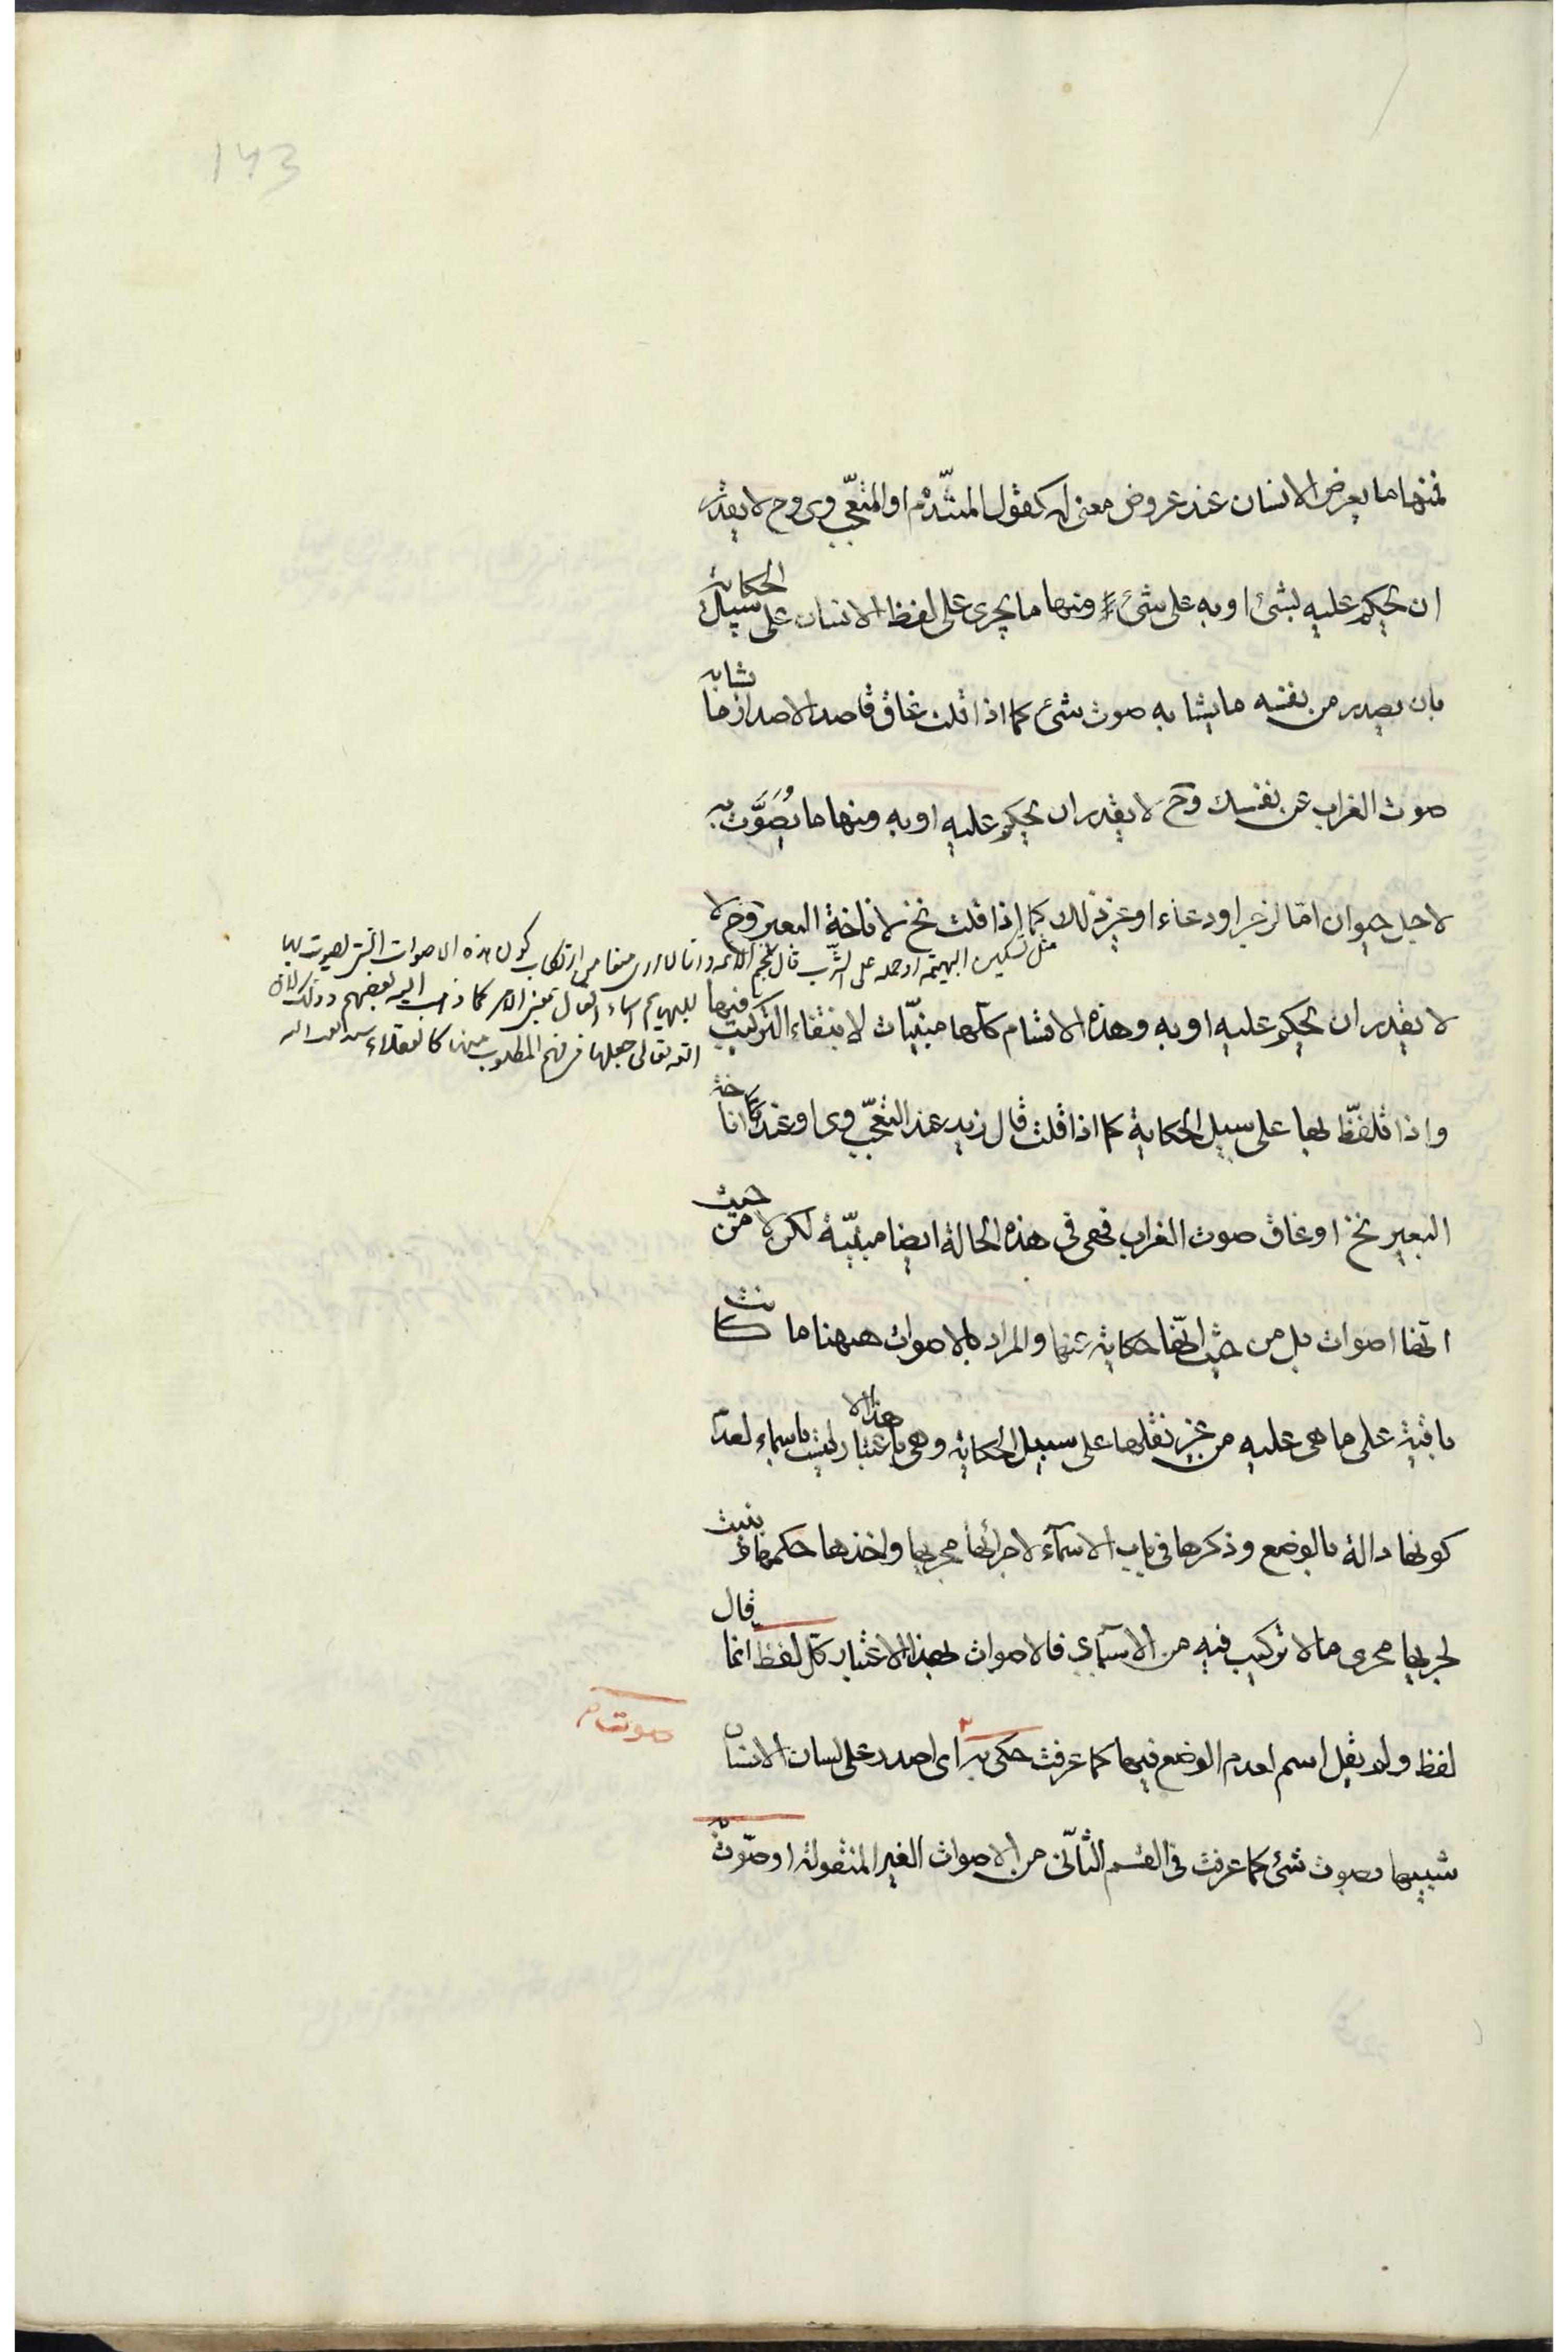 143
فمنها ما يعرض الانسان عند عروض معنى له كقول المتندم او المتعجب وى وح لا يقدر
ان يحكم عليه بشئ او به على شئ ومنها ما يجرى على لفظ الانسان على سبيل الحكاية
بان يصدر من نفسه ما يشابه صوت شئ كما اذا قلت غاق قاصدا لاصدار ما يشابه
صوت الغراب عن نفسك وح لا يقدر ان يحكم عليه او به ومنها ما يُصَوَّت به
لاجل حيوان امّا لزجر او دعاء او غير ذلك كما اذا قلت نخ لاناخة البعير وح لا
مثل تسكين البهيمة او حمله على الشرب قال نجم الائمة وانا لا ارى منعا من ارتكاب كون هذه الاصوات التى يصوت بها
للبهايم اسماء افعال بمعنى الامر كما ذهب اليه بعضهم وذلك لان
الله تعالى جعلها فى فهم المطلوب منها كالعقلاء
لا يقدر ان يحكم عليه او به وهذه الاقسام كلّها مبنيّات لانتفاء التركيب فيها
واذا تلفّظ بها على سبيل الحكاية كما اذا قلت قال زيد عند التعجّب وى او عند اناخة
البعير نخ او غاق صوت الغراب فهى فى هذه الحالة ايضا مبنيّة لكن لا من حيث
انّها اصوات بل من حيث انّها حكاية عنها والمراد بالاصوات ههنا ما كانت
باقية على ما هى عليه من غير نقلها على سبيل الحكاية وهى بهذا الاعتبار ليست باسماء لعدم
كونها دالة بالوضع وذكرها فى باب الاسماء لاجرائها مجريها واخذها حكمها وبنيت
لجريها مجرى ما لا تركيب فيه من الاسماء فالاصوات بهذا الاعتبار كل لفظ انما قال
لفظ ولم يقل اسم لعدم الوضع فيها كما عرفت حكى به اى اصدر على لسان الانسان
صوت
شبيها بصوت شئ كما عرفت فى القسم الثانى من الاصوات الغير المنقولة او صوّت به